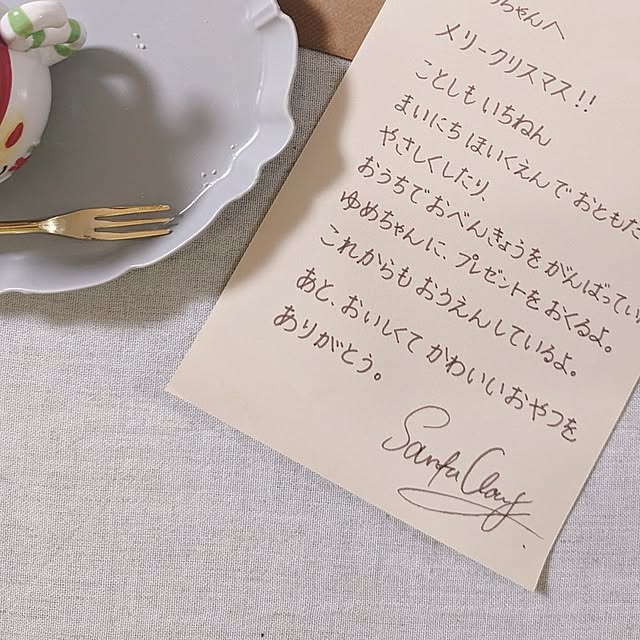 ちゃんへ
メリークリスマス!!
ことしもいちねん
まいにちほいくえんでおともだ
やさしくしたり、
おうちでおべんきょうをがんばってい
ゆめちゃんに、プレゼントをおくるよ。
これからもおうえんしているよ。
あと、おいしくてかわいいおやつを
ありがとう。
Santa Claus